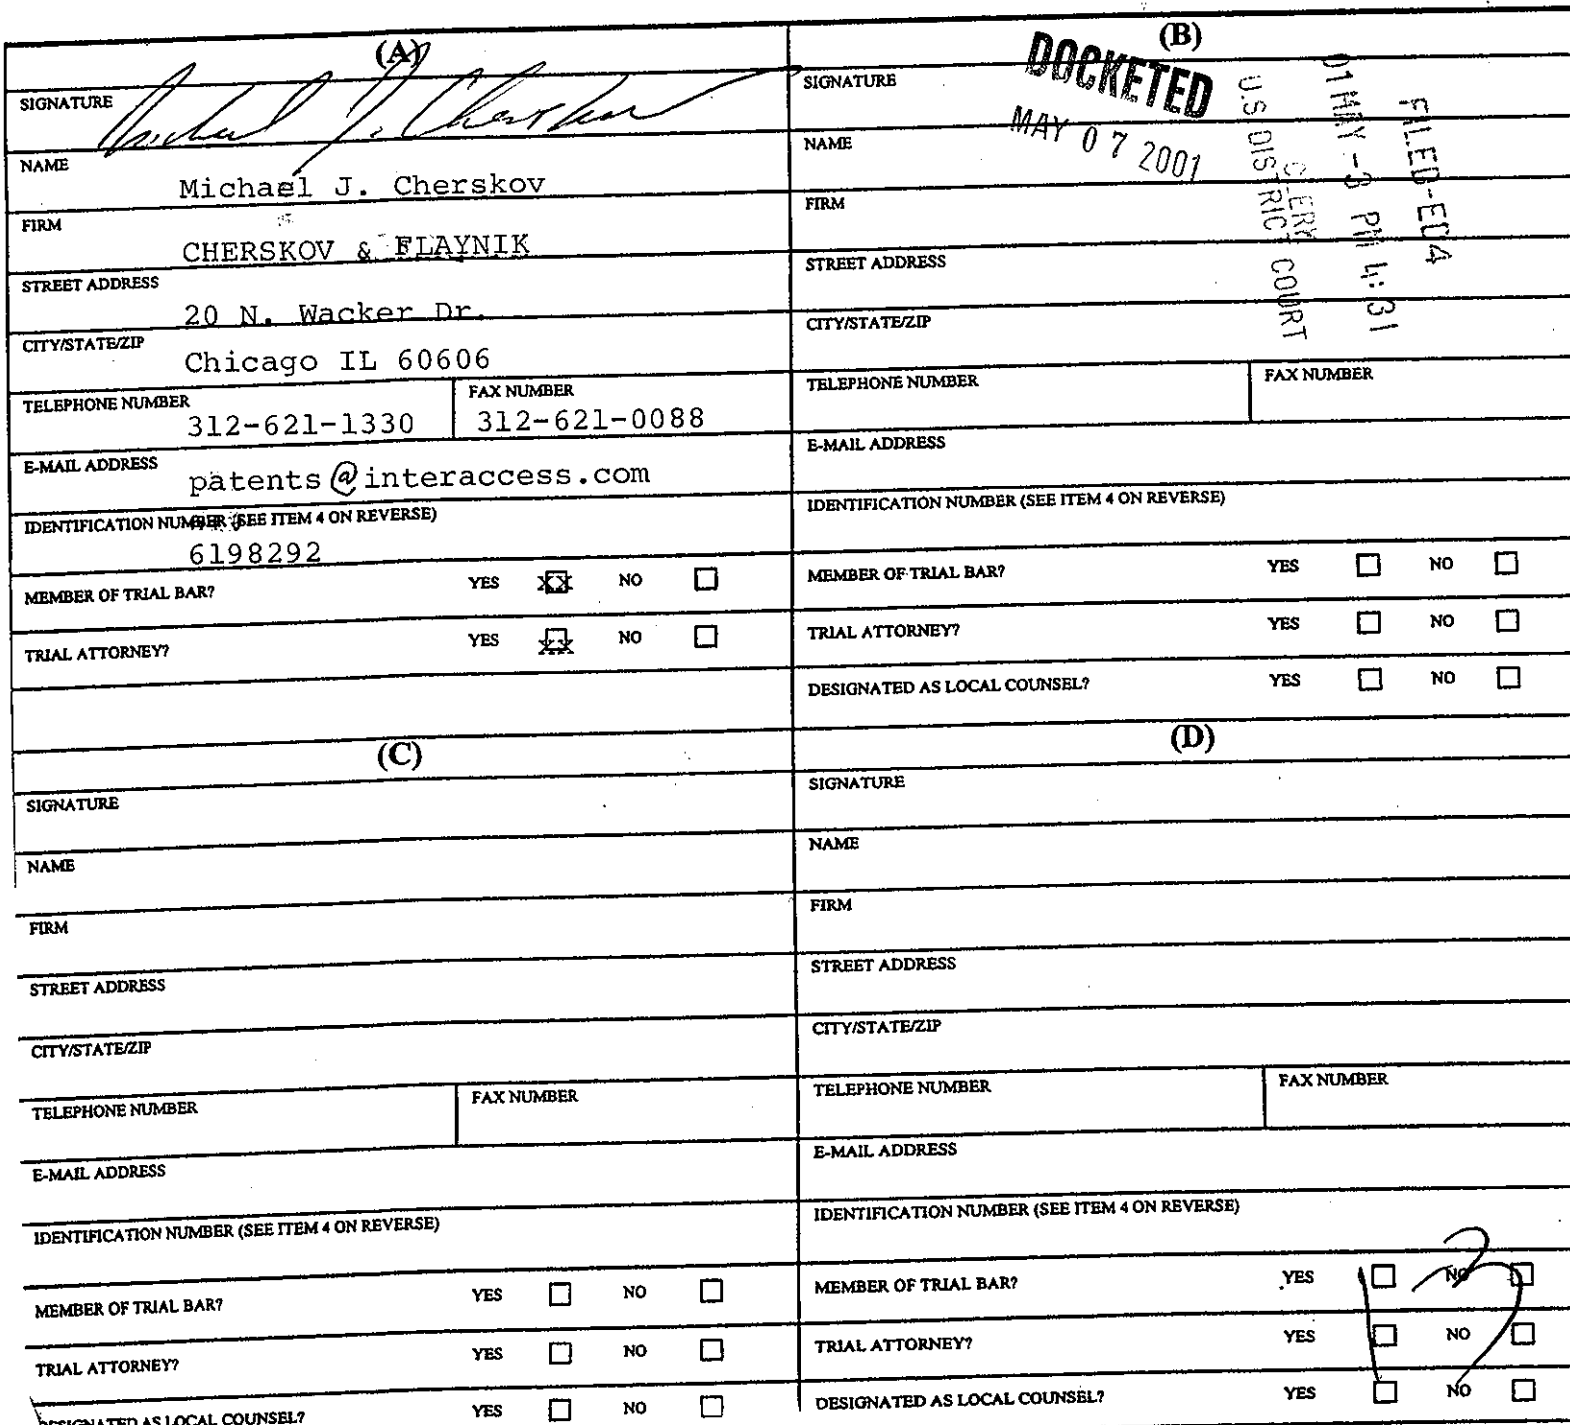 (A)
SIGNATURE Michael J. Cherskov
NAME
Michael J. Cherskov
FIRM
CHERSKOV & FLAYNIK
STREET ADDRESS
20 N. Wacker Dr.
CITY/STATE/ZIP
Chicago IL 60606
TELEPHONE NUMBER
312-621-1330
FAX NUMBER
312-621-0088
E-MAIL ADDRESS
patents@interaccess.com
IDENTIFICATION NUMBER (SEE ITEM 4 ON REVERSE)
6198292
MEMBER OF TRIAL BAR? YES XX NO
TRIAL ATTORNEY? YES XX NO
(B)
DOCKETED
MAY 07 2001
FILED-ED4
01 MAY -3 PM 4:31
CLERK
U.S. DISTRICT COURT
SIGNATURE
NAME
FIRM
STREET ADDRESS
CITY/STATE/ZIP
TELEPHONE NUMBER
FAX NUMBER
E-MAIL ADDRESS
IDENTIFICATION NUMBER (SEE ITEM 4 ON REVERSE)
MEMBER OF TRIAL BAR? YES NO
TRIAL ATTORNEY? YES NO
DESIGNATED AS LOCAL COUNSEL? YES NO
(C)
SIGNATURE
NAME
FIRM
STREET ADDRESS
CITY/STATE/ZIP
TELEPHONE NUMBER
FAX NUMBER
E-MAIL ADDRESS
IDENTIFICATION NUMBER (SEE ITEM 4 ON REVERSE)
MEMBER OF TRIAL BAR? YES NO
TRIAL ATTORNEY? YES NO
DESIGNATED AS LOCAL COUNSEL? YES NO
(D)
SIGNATURE
NAME
FIRM
STREET ADDRESS
CITY/STATE/ZIP
TELEPHONE NUMBER
FAX NUMBER
E-MAIL ADDRESS
IDENTIFICATION NUMBER (SEE ITEM 4 ON REVERSE)
MEMBER OF TRIAL BAR? YES NO
TRIAL ATTORNEY? YES NO
DESIGNATED AS LOCAL COUNSEL? YES NO
13